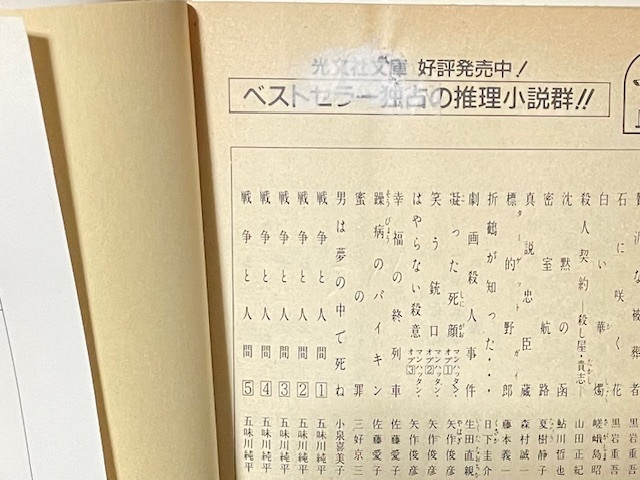 光文社文庫 好評発売中!
ベストセラー独占の推理小説群!!
石に咲く花 黒岩重吾
白い華燭 嵯峨島昭
殺人契約―殺し屋・貴志― 山田正紀
沈黙の函 鮎川哲也
密室航路 夏樹静子
真説忠臣蔵 森村誠一
標的野郎 藤本義一
折鶴が知った・・ 日下圭介
劇画殺人事件 生田直親
凝った死顔 マンハッタン・オプ1 矢作俊彦
笑う銃口 マンハッタン・オプ2 矢作俊彦
はやらない殺意 マンハッタン・オプ3 矢作俊彦
幸福の終列車 佐藤愛子
躁病のバイキン 佐藤愛子
蜜の罪 三好京三
男は夢の中で死ね 小泉喜美子
戦争と人間 1 五味川純平
戦争と人間 2 五味川純平
戦争と人間 3 五味川純平
戦争と人間 4 五味川純平
戦争と人間 5 五味川純平